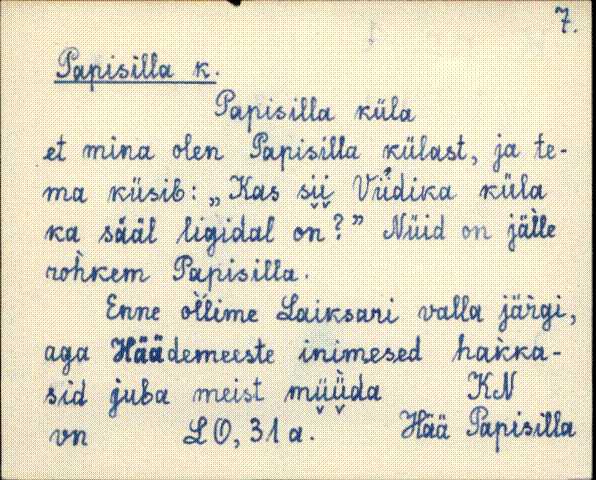 7.
Papisilla k.
Papisilla küla
et mina olen Papisilla külast, ja te-
ma küsib: „Kas sii Viidika küla
ka sääl ligidal on?” Nüid on jälle
rohkem Papisilla.
Enne ol̀lime Laiksari valla järgi,
aga Häädemeeste inimesed hak̀ka-
sid juba meist müüda KN
vn LO, 31 a. Hää Papisilla